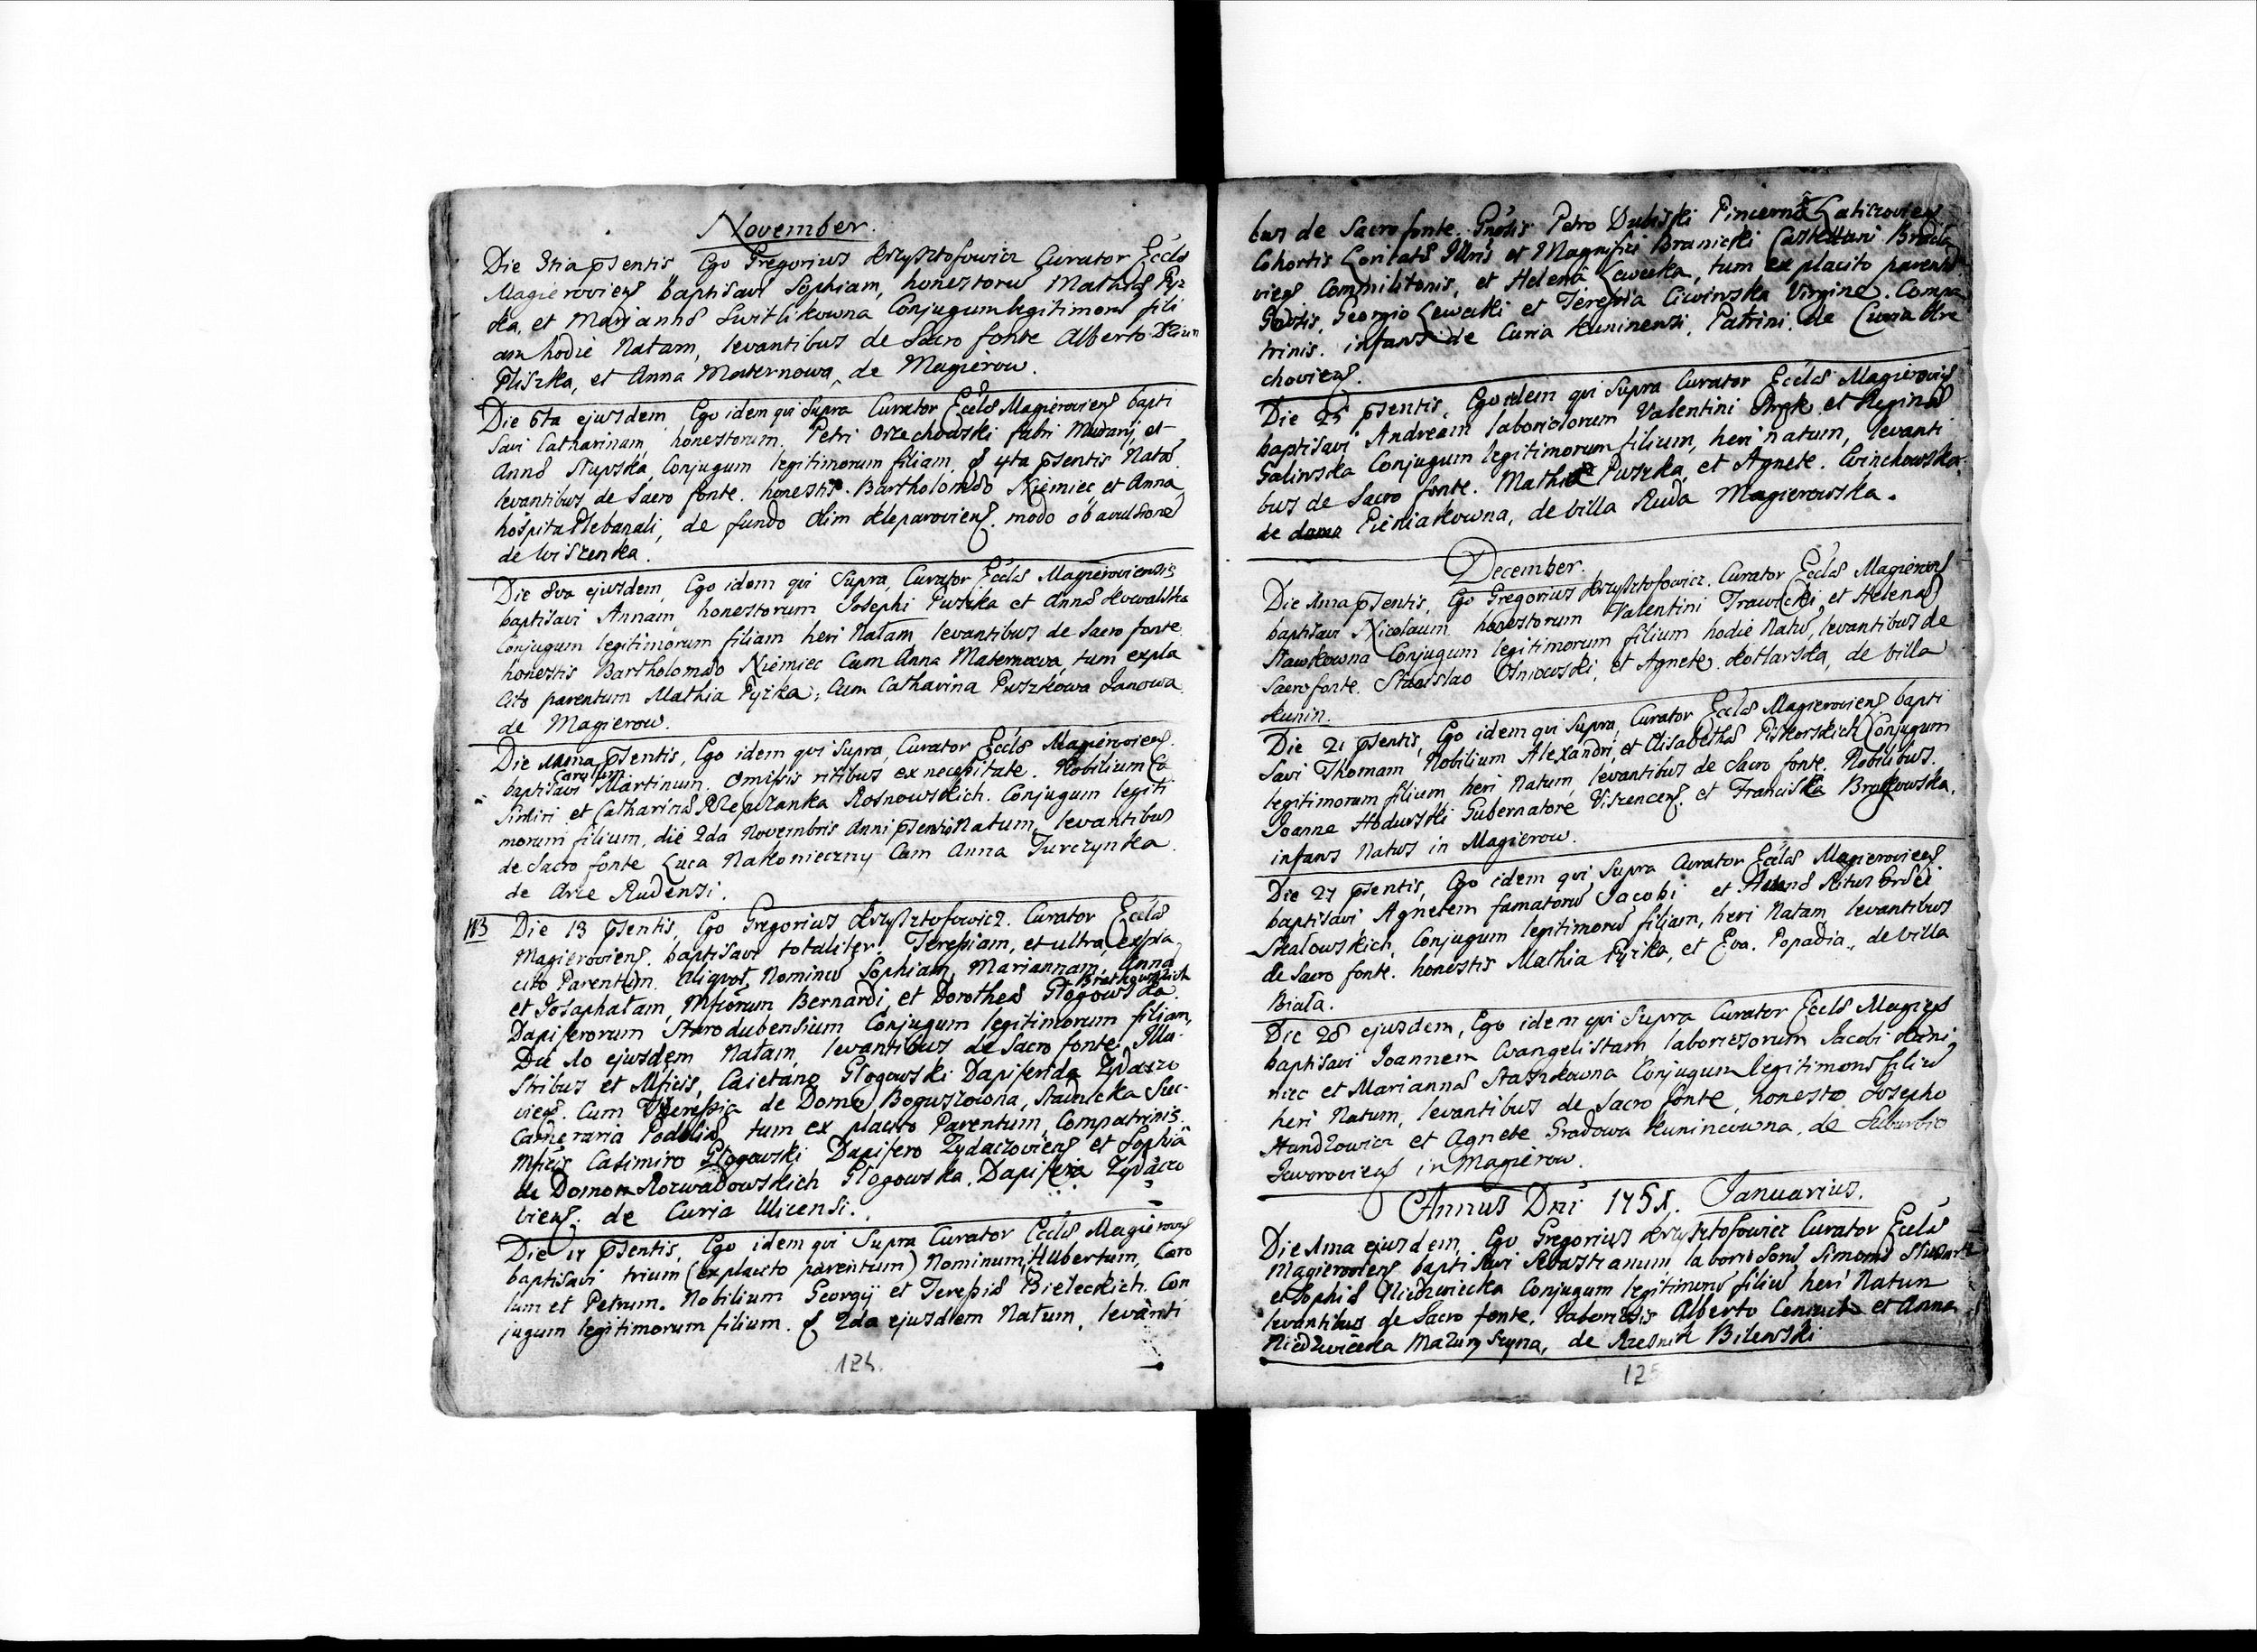 November.
Die 3tia psentis Ego Gregorius Krzysztofowicz Curator Eccls
Magierovieng baptisavi Sophiam, honestoru Mathiæ Pyz
ka, et Mariannæ Switlikowna Conjugum legitimoru fili
am hodie Natam, levantibus de Sacro fonte Alberto
Pliszka, et Anna Maternowa de Magierow.
Die 6ta ejusdem Ego idem qui Supra Curator Eccls Magierovieng bapti
savi Catharinam, honestorum Petri Orzechowski fabri Murarij, et
Annæ Słupska Conjugum legitimorum filiam, 4ta psentis Nata
levantibus de Sacro fonte. honestis. Bartholomæo Niemiec, et Anna
hospita Plebanali, de fundo olim Kleparovieng. modo ob avulsione
de Wiszenka.
Die 8va ejusdem, Ego idem qui Supra, Curator Eccls Magieroviensis
baptisavi Annam, honestorum Josephi Puszka et Annæ Kowalska
Conjugum legitimorum filiam heri Natam, levantibus de Sacro fonte.
honestis Bartholomæo Niemiec Cum Anna Maternowa tum expla
cito parentum Mathia Pyzka, Cum Catharina Puszkowa Janowa
de Magierow.
Die psentis, Ego idem qui Supra, Curator Eccls Magierovieng.
Carolum
baptisavi Martinum. Omissis ritibus ex necessitate. Nobilium Ca
simiri et Catharinæ Rzepczanka Rosnowskich. Conjugum legiti
morum filium, die 2da Novembris Anni psentis Natum, levantibus
de Sacro fonte Luca Nakonieczny Cum Anna Turczynka
de Arce Rudensi.
113 Die 13 psentis, Ego Gregorius Krzysztofowicz. Curator Eccls
Magierovieng. baptisavi totaliter Teressiam, et ultra, expla
cito Parentum. aliquot Nominu Sophiam, Mariannam, Anna
Bratkowskich
et Josaphatam, Mficorum Bernardi, et Dorotheæ Głogowska
Dapiferorum Starodubensium Conjugum legitimorum filiam,
Die 10 ejusdem Natam, levantibus de Sacro fonte. Illu
stribus et Mficis, Caietano Głogowski Dapiferida Zydaczo
vieng. Cum Theressia de Domo Boguszowna, Stadnicka Suc
Cameraria Podoliæ tum ex placito Parentum, Compatrinis
Mficis Casimiro Głogowski Dapifero Zydaczovieng et Sophia
de Domo Rozwadowskich Głogowska. Dapifera Zydaczo
vieng. de Curia Ulicensi.
Die 17 psentis, Ego idem qui Supra Curator Eccls Magierovg
baptisavi trium (explacito parentum) Nominum, Hubertum, Caro
lum et Petrum. Nobilium Georgij et Teressiæ Bieleckich. Con
jugum legitimorum filium. 2da ejusdem Natum, levanti
124.
bus de Sacro fonte. Gnosis Petro Dubiski Pincerna Laticzovieng
Cohortis Loricatæ Illris et Magnifici Branicki Castellani Bracla
vieng Commilitonis, et Helena Lewecka, tum explacito parentu
Gnosis, Georgio Lewecki et Teressia Ciwinska Virgine. Compa
trinis. infans de Curia Kuninensi, Patrini, de Curia
chovieng.
Die 25 psentis, Ego idem qui Supra Curator Eccls Magierovieng
baptisavi Andream laboriosorum Valentini et Reginæ
Galinska Conjugum legitimorum filium, heri natum, levanti
bus de Sacro fonte. Mathia Puszka, et Agnete.
de domo Pieniakowna, de villa Ruda Magierowska.
December.
Die 1ma psentis, Ego Gregorius Krzysztofowicz. Curator Eccls Magierovg
baptisavi Nicolaum honestorum Valentini Trawicki, et Helenæ
Stawkowna Conjugum legitimorum filium hodie Natu, levantibus de
Sacro fonte. Stanislao Osniowski, et Agnete Kotlarska, de Villa
Kunin.
Die 21 psentis, Ego idem qui Supra, Curator Eccls Magierovieng bapti
savi Thomam Nobilium Alexandri, et Elisabethæ Piskorskich Conjugum
legitimorum filium heri Natum, levantibus de Sacro fonte. Nobilibus.
Joanne Hodurski Gubernatore Viszenceng. et Franciska Bratkowska.
infans Natus in Magierow.
Die 27 psentis, Ego idem qui Supra Curator Eccls Magierovieng
baptisavi Agnetem famatoru Jacobi et Ritus Grdci
Skalowskich, Conjugum legitimoru filiam, heri Natam, levantibus
de Sacro fonte. honestis Mathia Pyzka, et Eva. Popadia, de Villa
Biała.
Die 28 ejusdem, Ego idem qui Supra Curator Eccls Magierg
baptisavi Joannem Evangelistam, laboriosorum Jacobi
niec et Mariannæ Staszkowna Conjugum legitimoru filiu
heri Natum, levantibus de Sacro fonte, honesto Josepho
Handzowicz et Agnete Gradowa Kunincowna, de Suburbio
Javorovieng in Magierow.
Annus Dni 1751. Januarius.
Die 1ma ejusdem, Ego Gregorius Krzysztofowicz Curator Eccls
Magierovieng baptisavi Sebastianum, laboriosoru Simonis
et Sophiæ Niedzwiecka Conjugum legitimoru filiu heri Natum
levantibus de Sacro fonte. laboriosis Alberto et Anna
Niedzwiecka Mazurszyna, de Rzednik Bilenski
125